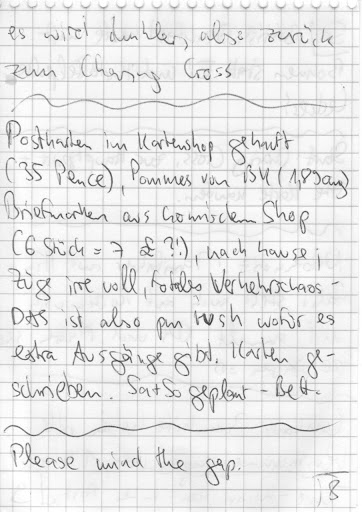 es wird dunkler, also zurück
zum Charing Cross
Postkarten im Kartenshop gekauft
(35 Pence), Pommes von BK (1,89
Briefmarken aus komischem Shop
(6 Stück = 7 £ ?!), nach hause;
Züge irre voll, totales Verkehrschaos -
DAS ist also pm rush wofür es
extra Ausgänge gibt. Karten ge-
schrieben. Sa+So geplant - Bett.
Please mind the gap.
8